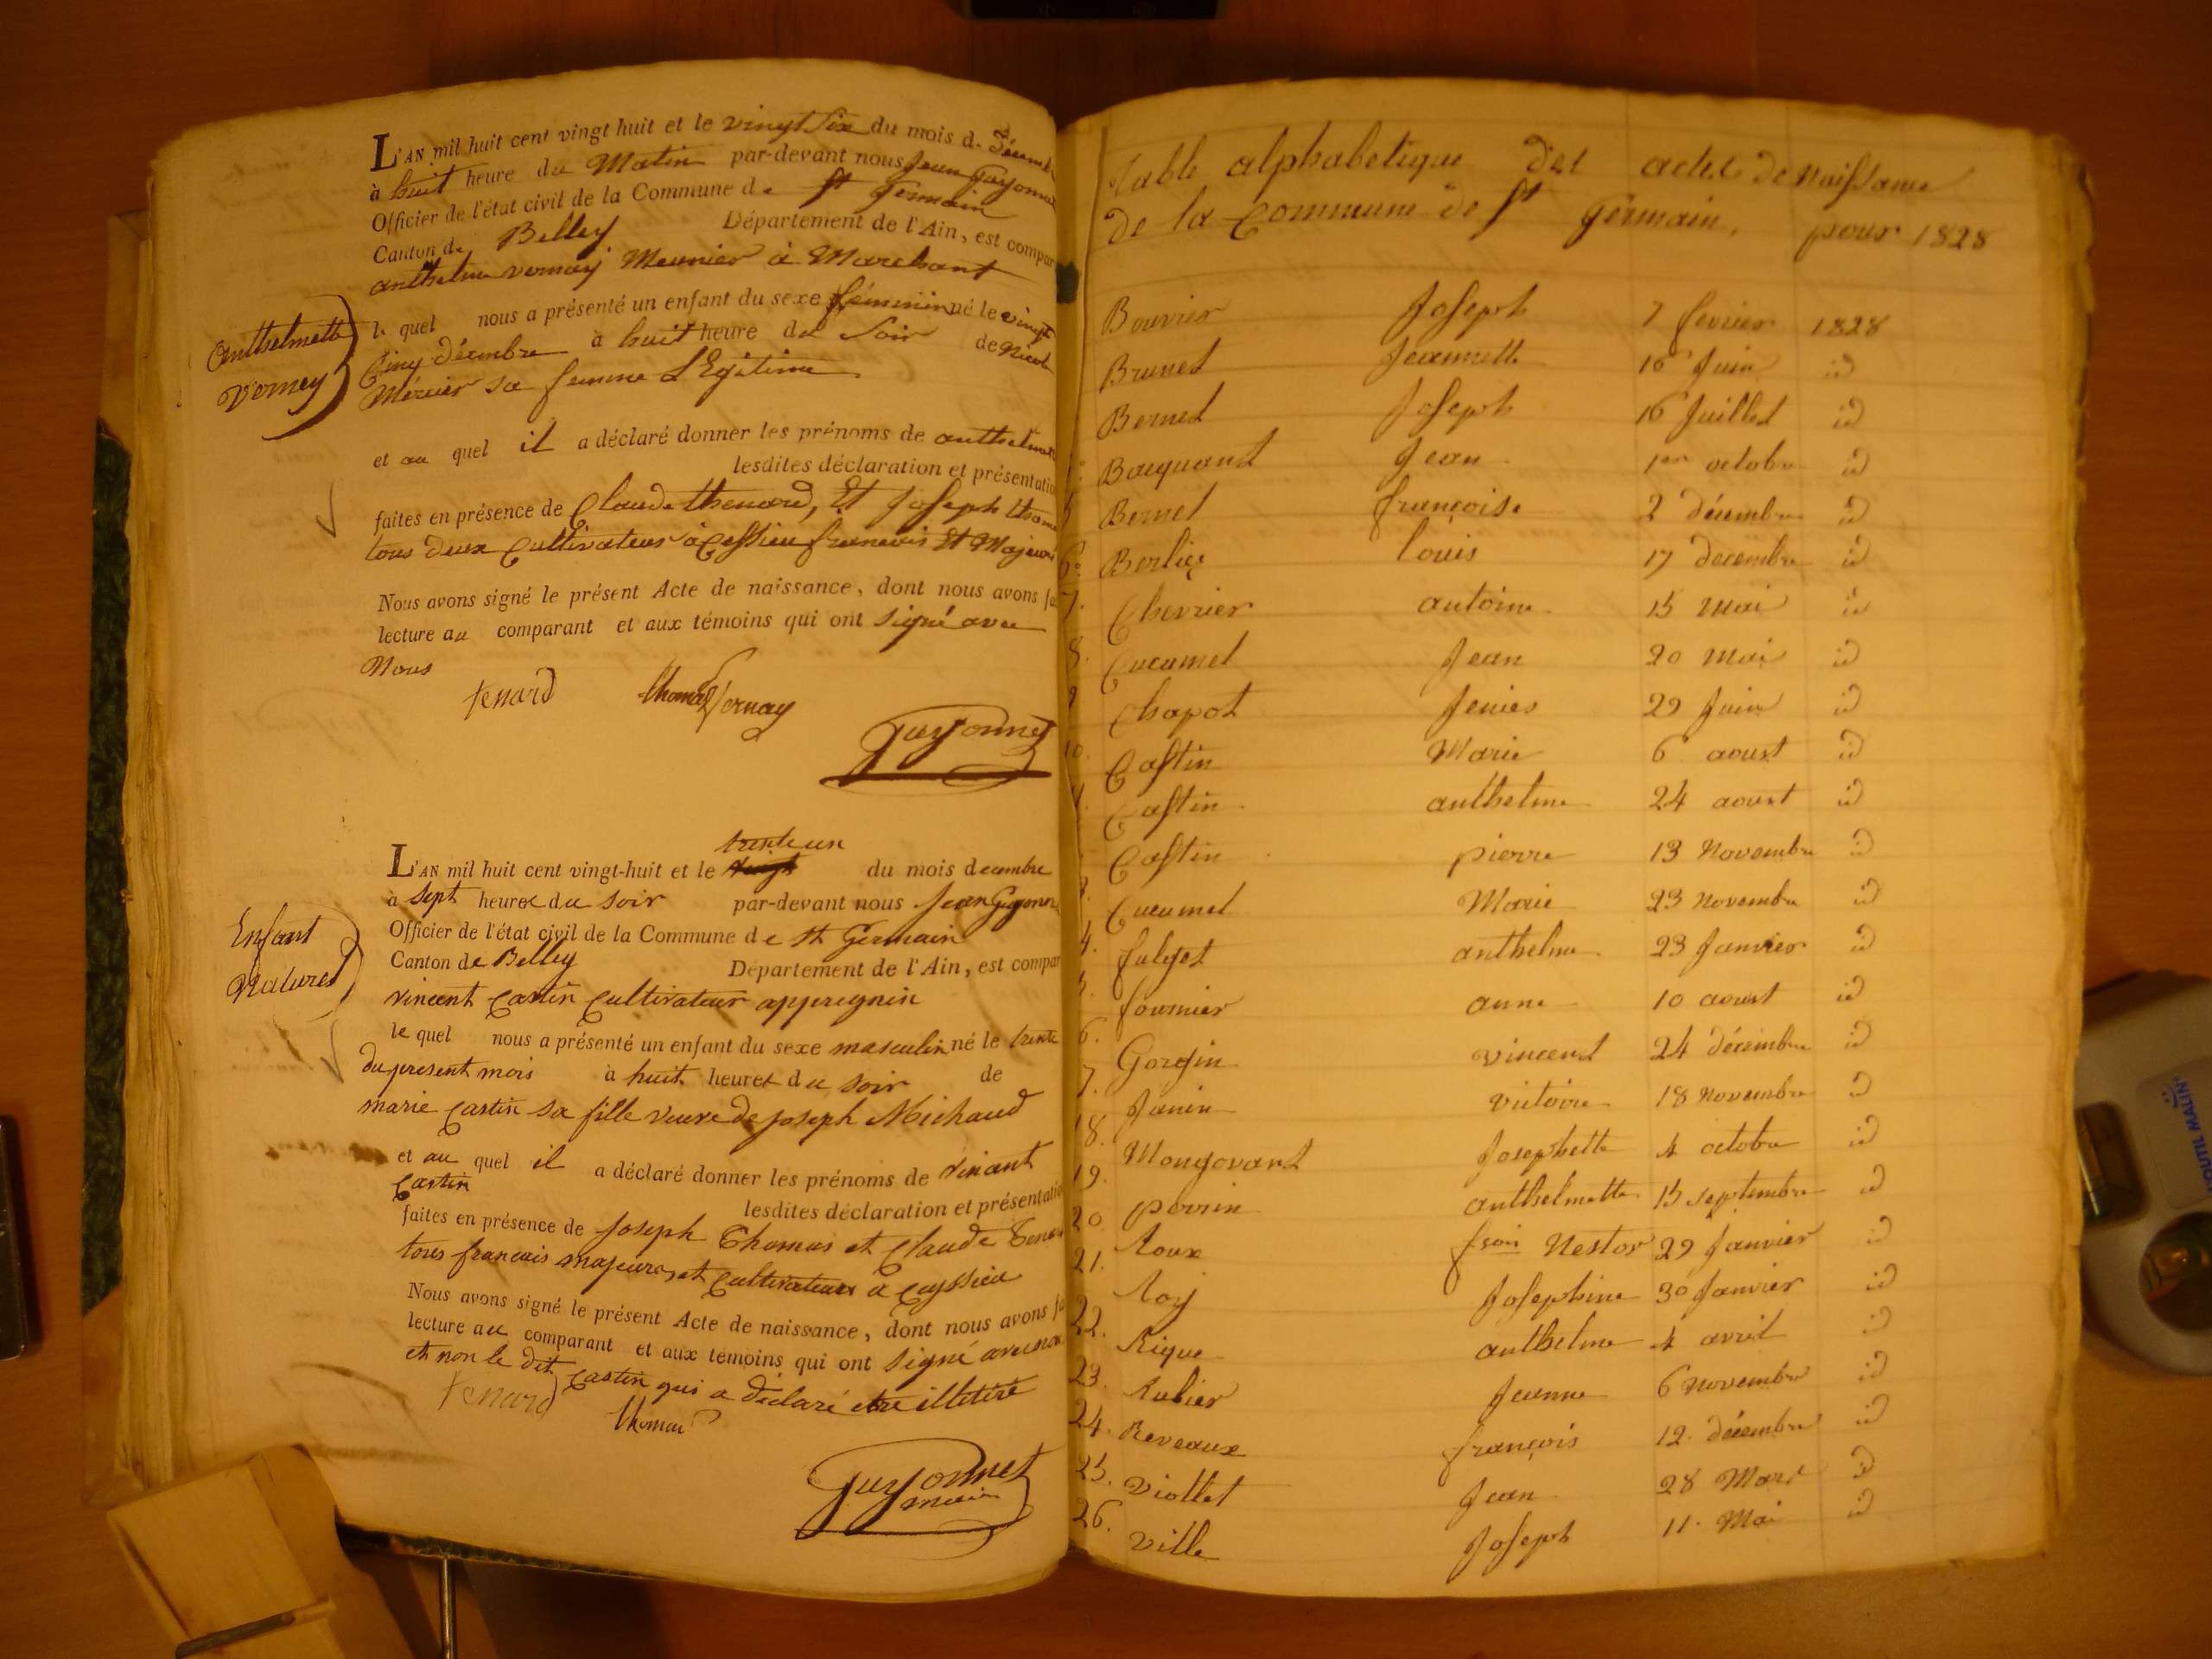 L'AN mil huit cent vingt huit et le vingt six du mois de Décembre
à huit heure du Matin par-devant nous Jean Guyonnet
Officier de l'état civil de la Commune de St Germain
Canton de Belley Département de l'Ain, est compar
anthelme vernay Meunier à Marchant
le quel nous a présenté un enfant du sexe féminin né le vingt
Cinq décembre à huit heure du Soir de Nicole
Mérier sa femme LEgitime
Anthelmette
Verney
et au quel il a déclaré donner les prénoms de anthelmette
lesdites déclaration et présentatio
faites en présence de Claude thenard, Et Joseph thomas
tous deux Cultivateur à Cessieu francois Et Majeurs
Nous avons signé le présent Acte de naissance, dont nous avons fa
lecture au comparant et aux témoins qui ont signé avec
Nous
tenard thomas Vernay
Guyonnet
L'AN mil huit cent vingt-huit et le trente un du mois decembre
à sept heures du soir par-devant nous Jean Guyonnet
Officier de l'état civil de la Commune de St Germain
Canton de Belley Département de l'Ain, est compar
vincent Castin Cultivateur appregnin
Enfant
Naturel
le quel nous a présenté un enfant du sexe masculin né le trente
du present mois à huit heures du soir de
marie Castin sa fille veuve de joseph Michaud
et au quel il a déclaré donner les prénoms de vincent
Castin
lesdites déclaration et présentatio
faites en présence de Joseph Thomas et Claude Tenard
tous francais majeurs et Cultivateurs a Ceyssieu
Nous avons signé le présent Acte de naissance, dont nous avons fa
lecture au comparant et aux témoins qui ont signé avec nous
et non le dit Castin qui a déclaré etre illetiré
tenard thomas
Guyonnet
maire
Table alphabetique des actes de Naissance
de la Commune de St germain, pour 1828
Bouvier Joseph 7 fevrier 1828
Brunet Jeannette 16 Juin id
Bernet Joseph 16 Juillet id
Bacquant Jean 1er octobre id
5 Bernet françoise 2 décembre id
6. Berlier louis 17 decembre id
7. Chevrier antoine 15 Mai id
8. Cucumel Jean 20 Mai id
9 Chapot Jenies 29 Juin id
10. Castin Marie 6 aoust id
Castin anthelme 24 aoust id
Castin pierre 13 Novembre id
3. Cucumel Marie 23 Novembre id
4. fulget anthelme 23 Janvier id
5. fournier anne 10 aoust id
6. Gorgin vincent 24 décembre id
7. Janin victoire 18 Novembre id
18. Mongovant Josephette 4 octobre id
19. perrin anthelmette 15 septembre id
20. Roux fsois Nestor 29 Janvier id
21. Roy Josephine 30 Janvier id
22. Rique anthelme 4 avril id
23. Rubier Jeanne 6 Novembre id
24. Reveaux françois 12. décembre id
25. Viollet Jean 28 Mars id
26. Ville Joseph 11. Mai id
OUTIL MALIN